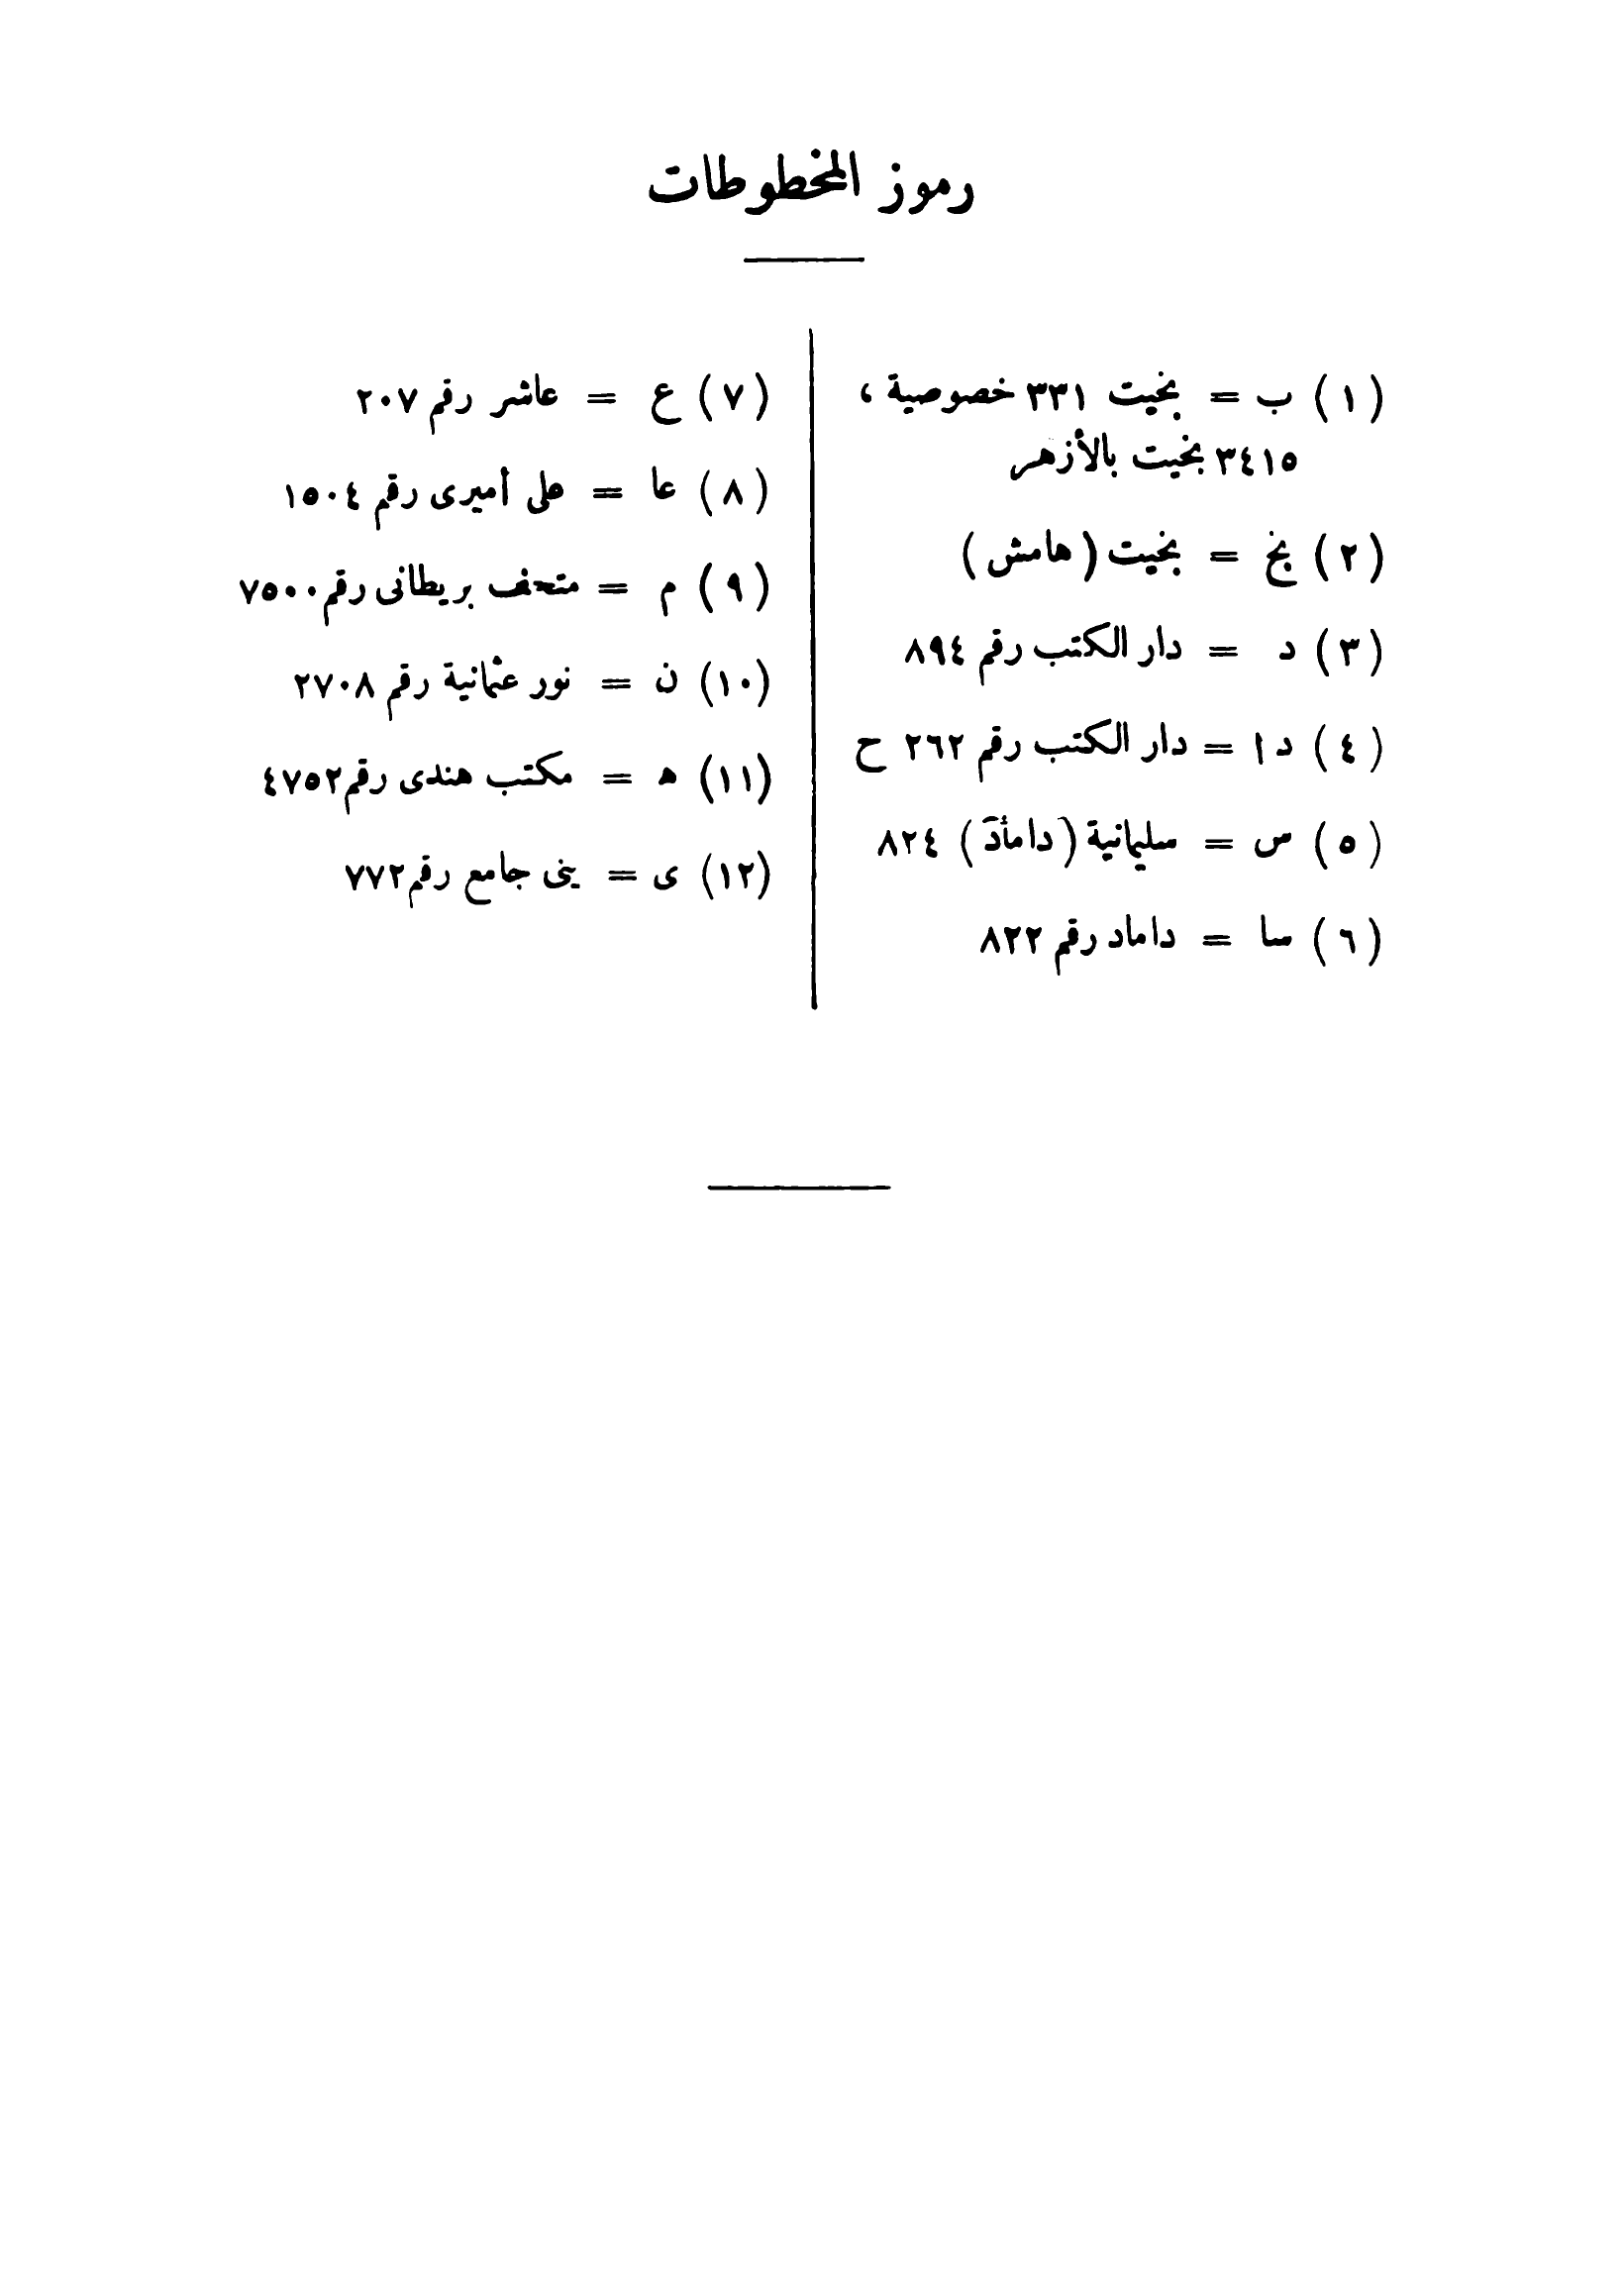 رموز المخطوطات
(١) ب = بخيت ٣٣١ خصوصية ،
٣٤١٥ بخيت بالأزهر
(٢) بخ = بخيت (هامش)
(٣) د = دار الكتب رقم ٨٩٤
(٤) دا = دار الكتب رقم ٢٦٢ ح
(٥) س = سليمانية (داماد) ٨٢٤
(٦) سا = داماد رقم ٨٢٢
(٧) ع = عاشر رقم ٢٠٧
(٨) عا = على أميرى رقم ١٥٠٤
(٩) م = متحف بريطانى رقم ٧٥٠٠
(١٠) ن = نور عثمانية رقم ٢٧٠٨
(١١) ه = مكتب هندى رقم ٤٧٥٢
(١٢) ى = ينى جامع رقم ٧٧٢